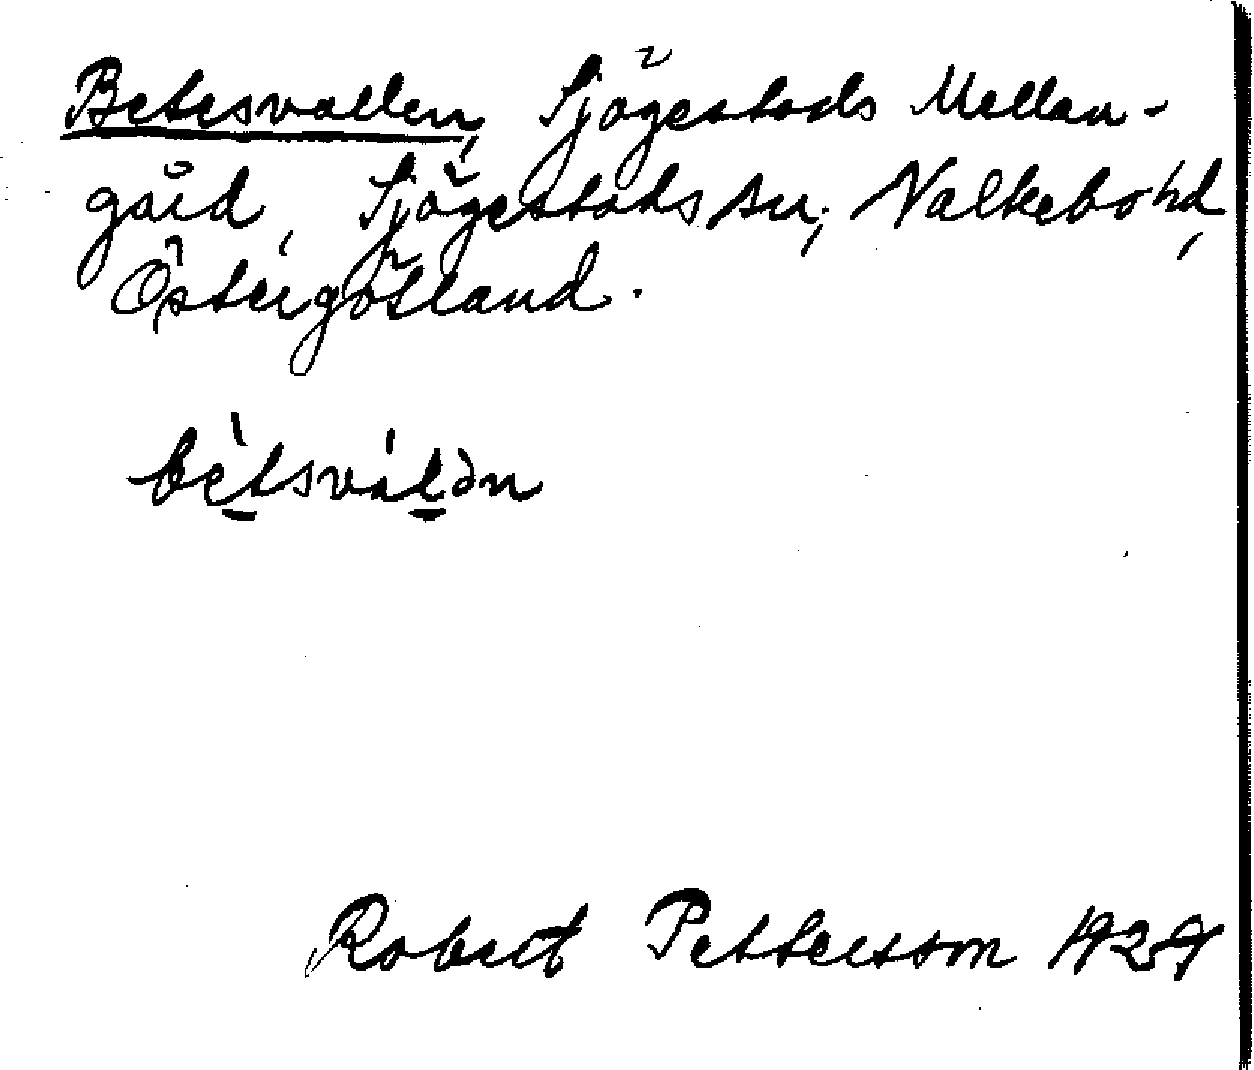 Betesvallen, Sjögestads Mellan-
gård, Sjögestads sn; Valkebo hd,
Östergötland.
bètsválən
Robert Pettersson